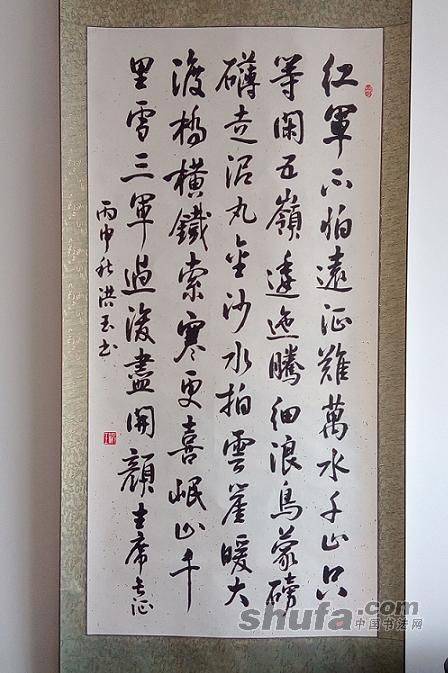 红軍不怕遠征難萬水千山只
等閑五嶺逶迤騰细浪烏蒙磅
礴走泥丸金沙水拍雲崖暖大
渡橋橫鐵索寒更喜岷山千
里雪三軍過後盡開顏主席长征
丙申秋洪玉书
shufa.com
中国书法网